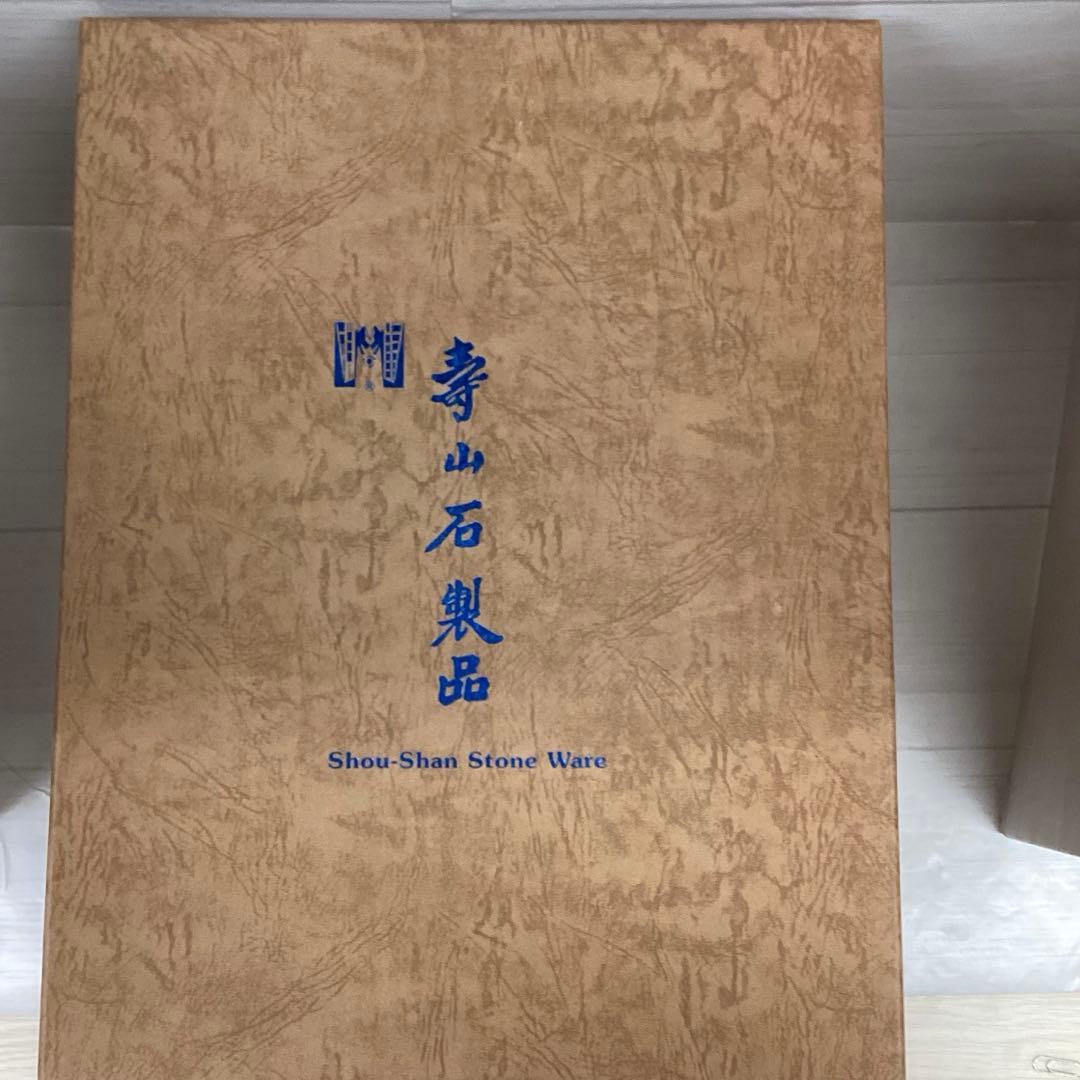 壽山石製品
Shou-Shan Stone Ware